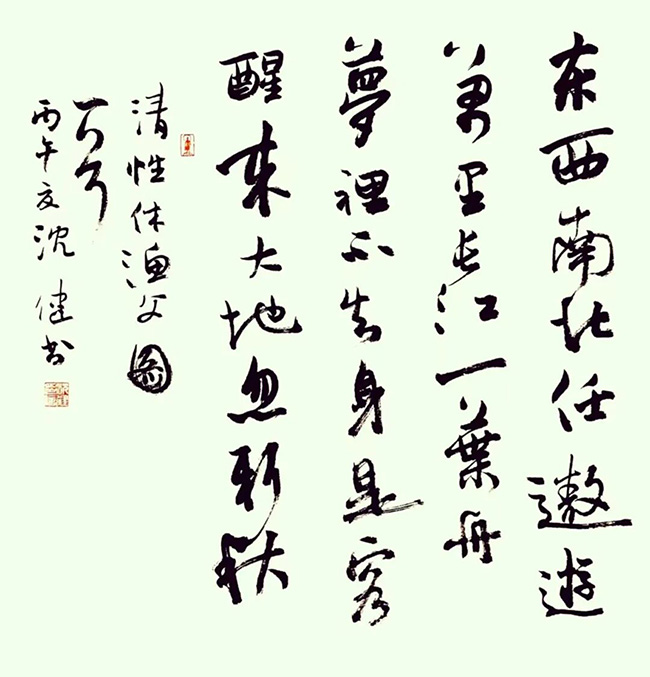 东西南北任遨遊
萬里長江一葉舟
夢裡不知身是客
醒来大地忽新秋
清性休漁父圖
一首
丙午夏沈健书